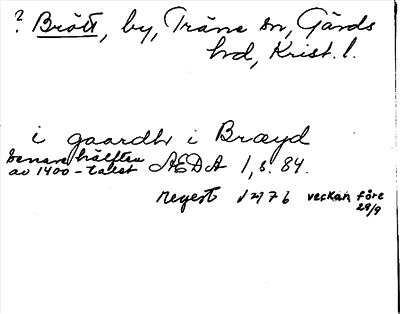 ? Brött, by, Träne sn, Gärds
hd, Krist. l.
i gaardh i Bræyd
senare hälften
av 1400-talet ÆDA 1, s. 84.
regest 1276 veckan före
29/9